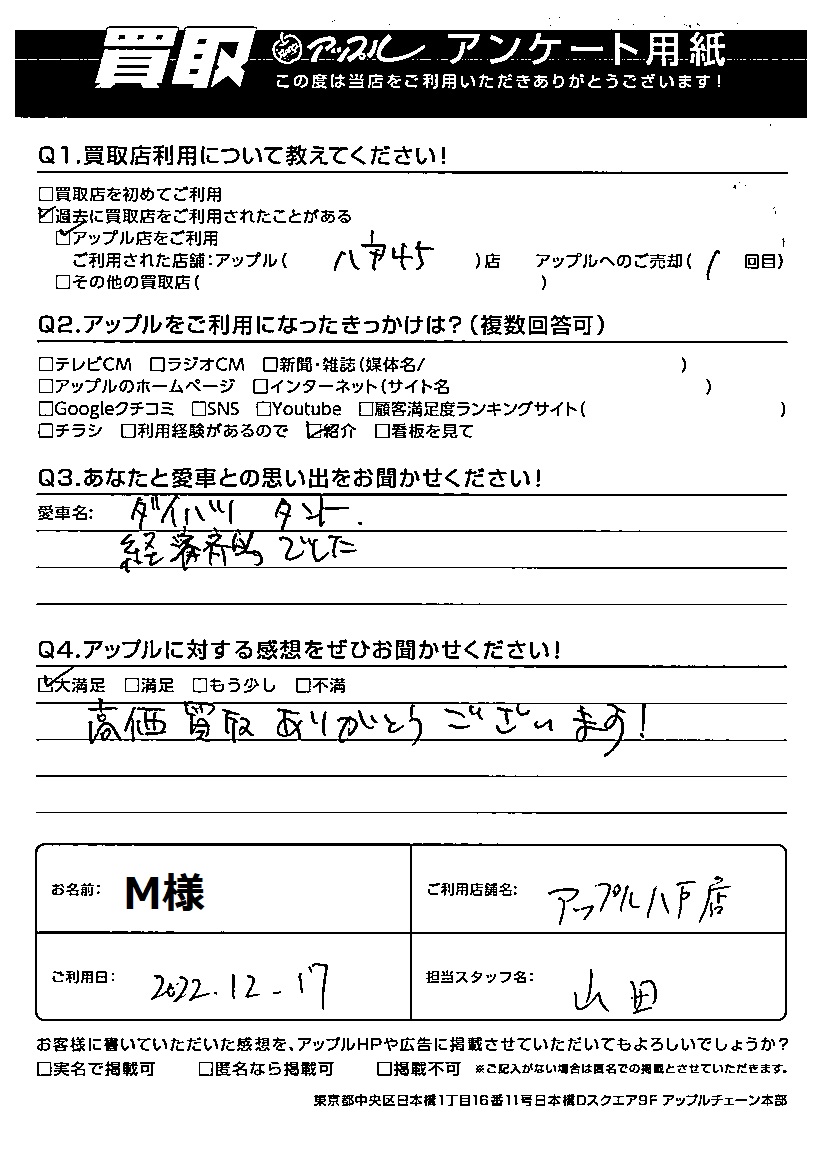 買取 アップル アンケート用紙
この度は当店をご利用いただきありがとうございます!
Q1.買取店利用について教えてください!
□買取店を初めてご利用
☑過去に買取店をご利用されたことがある
☑アップル店をご利用
ご利用された店舗:アップル( 八戸45 )店 アップルへのご売却( 1 回目)
□その他の買取店( )
Q2.アップルをご利用になったきっかけは?(複数回答可)
□テレビCM □ラジオCM □新聞・雑誌(媒体名/ )
□アップルのホームページ □インターネット(サイト名 )
□Googleクチコミ □SNS □Youtube □顧客満足度ランキングサイト( )
□チラシ □利用経験があるので ☑紹介 □看板を見て
Q3.あなたと愛車との思い出をお聞かせください!
愛車名: ダイハツ タント.
経済的でした
Q4.アップルに対する感想をぜひお聞かせください!
☑大満足 □満足 □もう少し □不満
高価買取ありがとうございます!
お名前: M様 ご利用店舗名: アップル八戸店
ご利用日: 2022.12-17 担当スタッフ名: 山田
お客様に書いていただいた感想を、アップルHPや広告に掲載させていただいてもよろしいでしょうか?
□実名で掲載可 □匿名なら掲載可 □掲載不可 ※ご記入がない場合は匿名での掲載とさせていただきます。
東京都中央区日本橋1丁目16番11号日本橋Dスクエア9F アップルチェーン本部